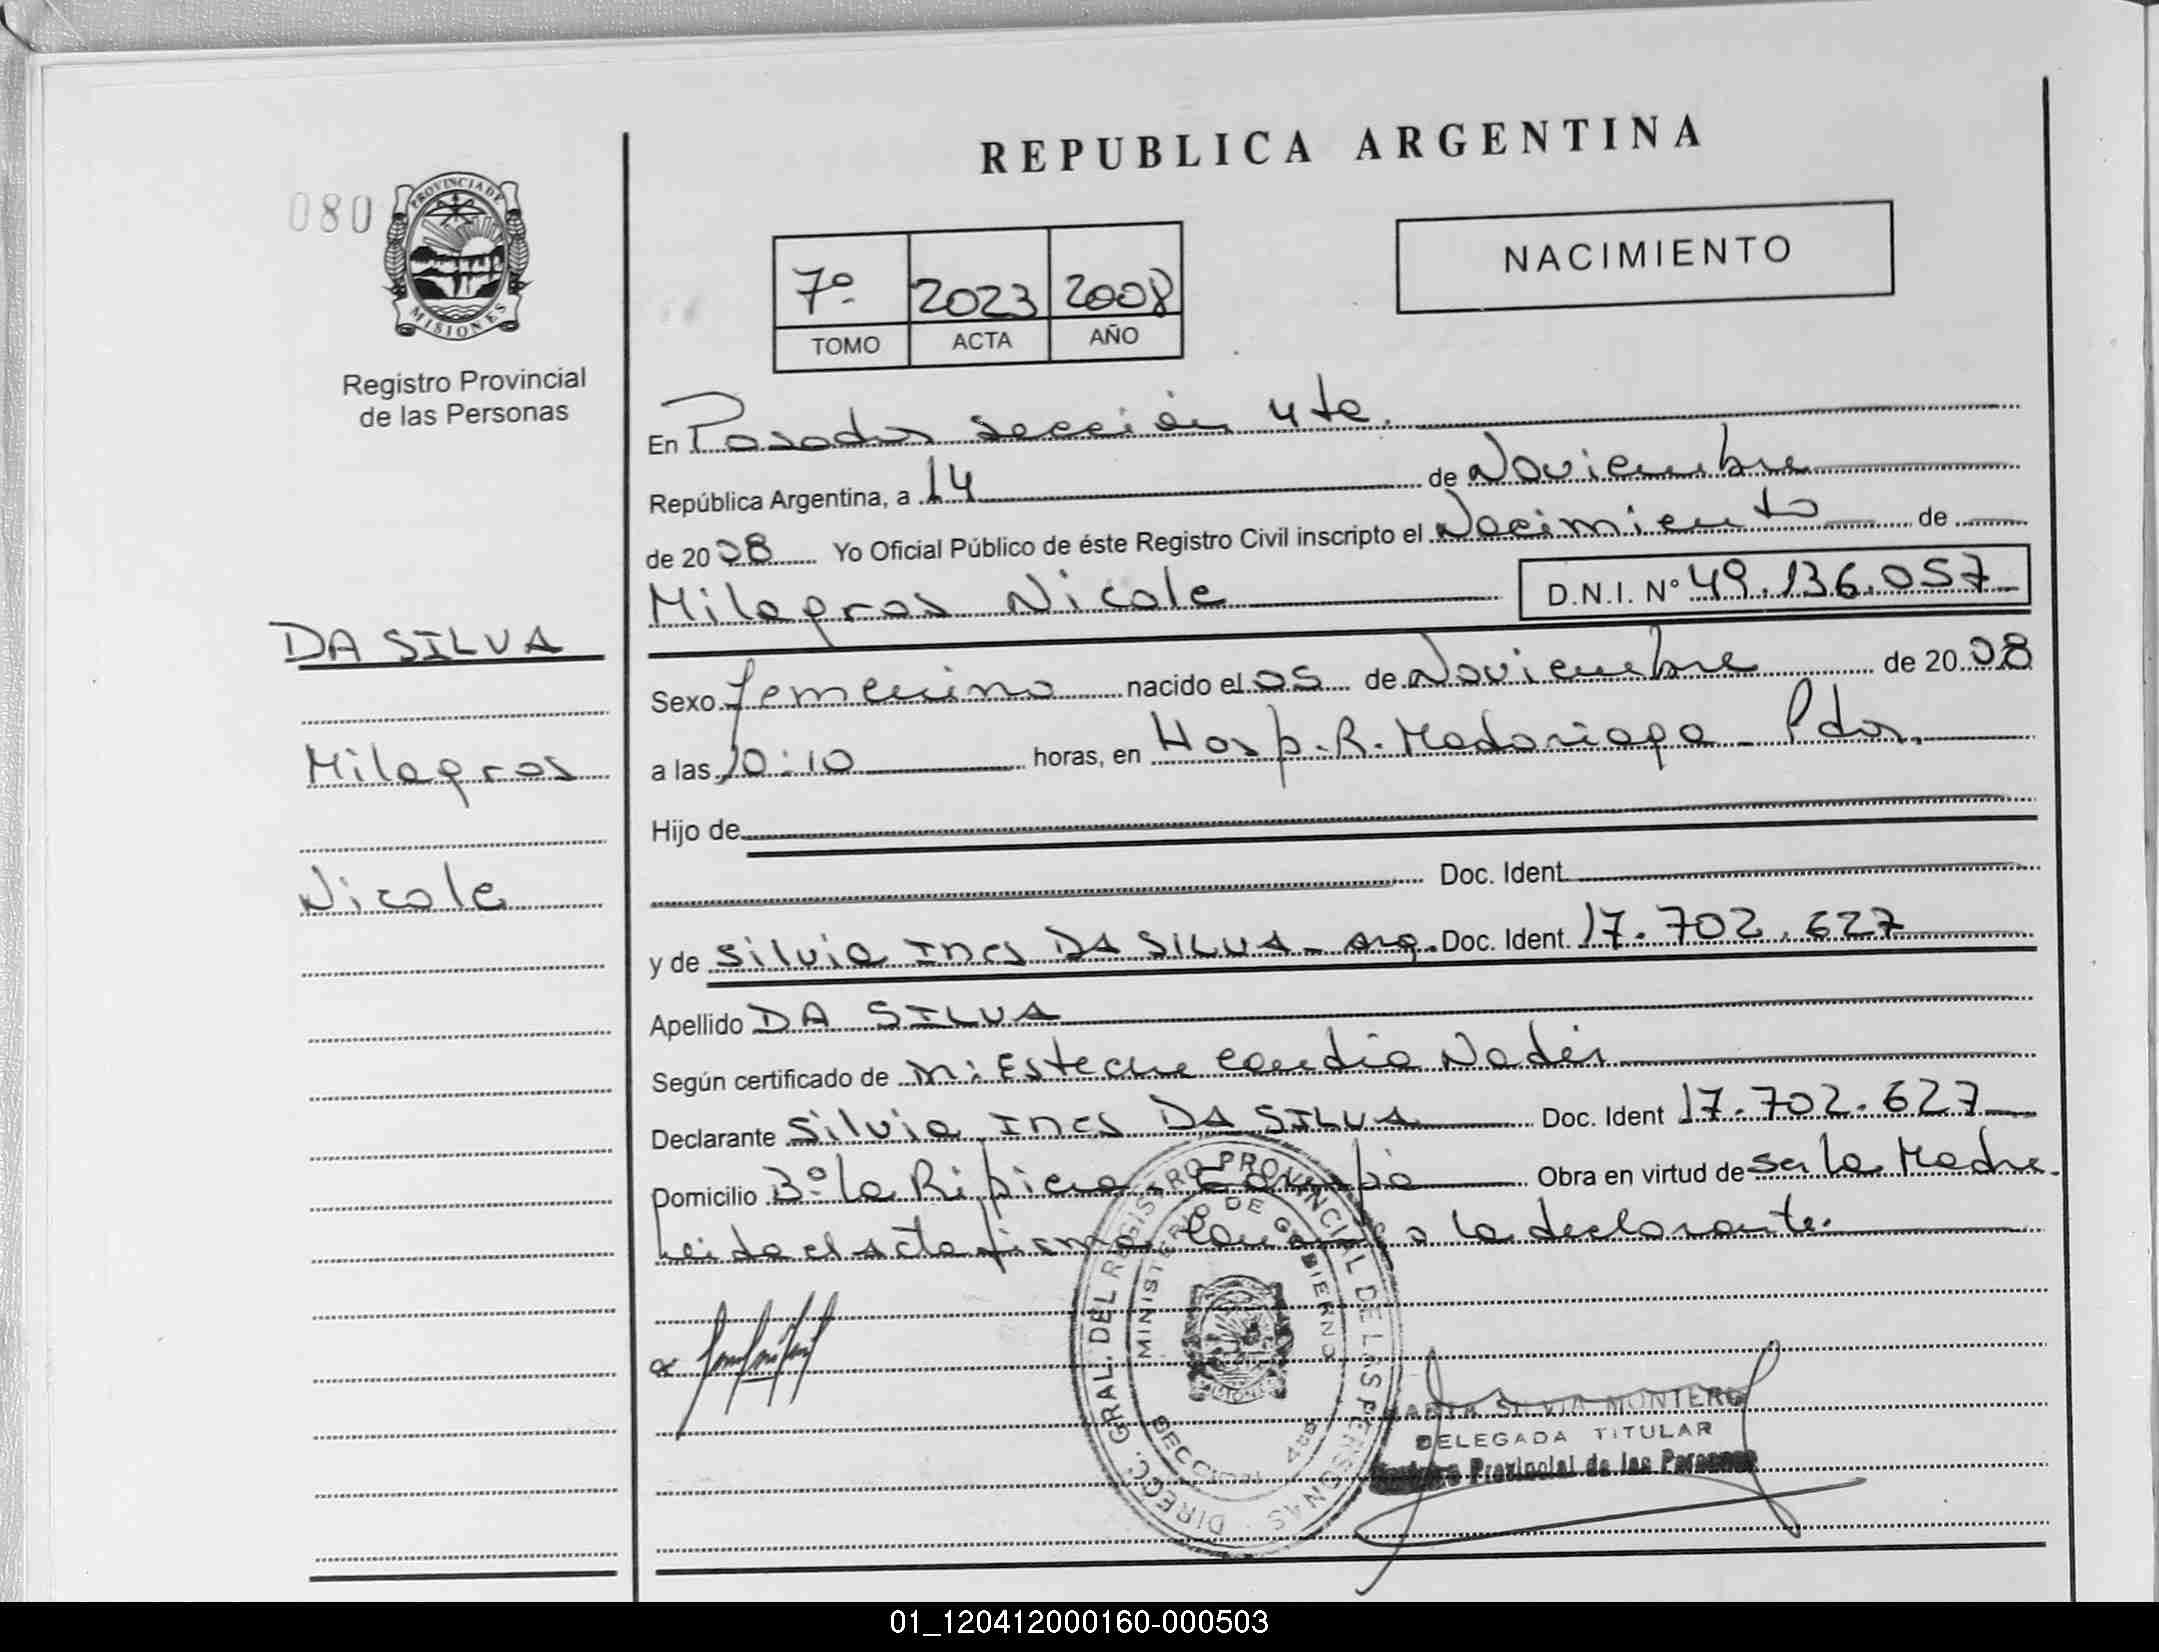 REPUBLICA ARGENTINA
080
PROVINCIA DE
MISIONES
Registro Provincial
de las Personas
7º 2023 2008
TOMO ACTA AÑO
NACIMIENTO
En Posadas sección 4ta.
República Argentina, a 14 de Noviembre
de 2008 Yo Oficial Público de éste Registro Civil inscripto el Nacimiento de
Milagros Nicole D.N.I. Nº 49.136.057
DA SILVA
Milagros
Nicole
Sexo femenino nacido el 05 de Noviembre de 2008
a las 10:10 horas, en Hosp. R. Madariaga - Pdas.
Hijo de
Doc. Ident.
y de Silvia Ines DA SILVA - arg. Doc. Ident. 17.702.627
Apellido DA SILVA
Según certificado de M: Esteche
Declarante Silvia Ines DA SILVA Doc. Ident 17.702.627
Domicilio Bº la Obra en virtud de ser la Madre.
Leida el acta firma a la declarante.
DIRECC. GRAL. DEL REGISTRO PROVINCIAL DE LAS PERSONAS
MINISTERIO DE GOBIERNO
MISIONES
SECCIONAL 4ta
MARTA SILVIA MONTERO
DELEGADA TITULAR
Registro Provincial de las Personas
01_120412000160-000503